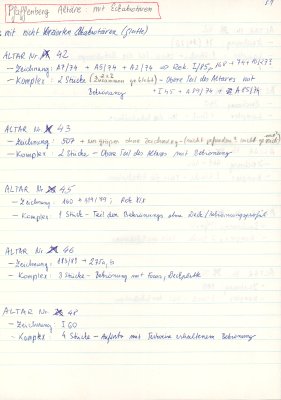 Pfaffenberg Altäre: mit Eckakroteren
mit nicht verzierten Akroteren (glatte)
ALTAR Nr 42
- Zeichnung: A7/74 + A5/74 + A2/74 ⇒ Rek I/85
- Komplex: 2 Stücke (zusammen geklebt) - Obere Teil des Altares mit
Bekrönung
ALTAR Nr 43
- Zeichnung: 307 + ohne Zeichnung - (nicht gefunden
- Komplex: 2 Stücke - Obere Teil des Altares mit Bekrönung
ALTAR Nr 45
- Zeichnung: 160 + 199/79; Rek XIX
- Komplex: 1 Stück - Teil der Bekrönung ohne Deck/bekrönungsprofil
ALTAR Nr 46
- Zeichnung: 183/81 + 275a,b
- Komplex: 3 Stücke - Bekrönung mit Deckplatte
ALTAR Nr 48
- Zeichnung: I 60
- Komplex 4 Stücke - Aufsatz mit teilweise erhaltenem Bekrönung